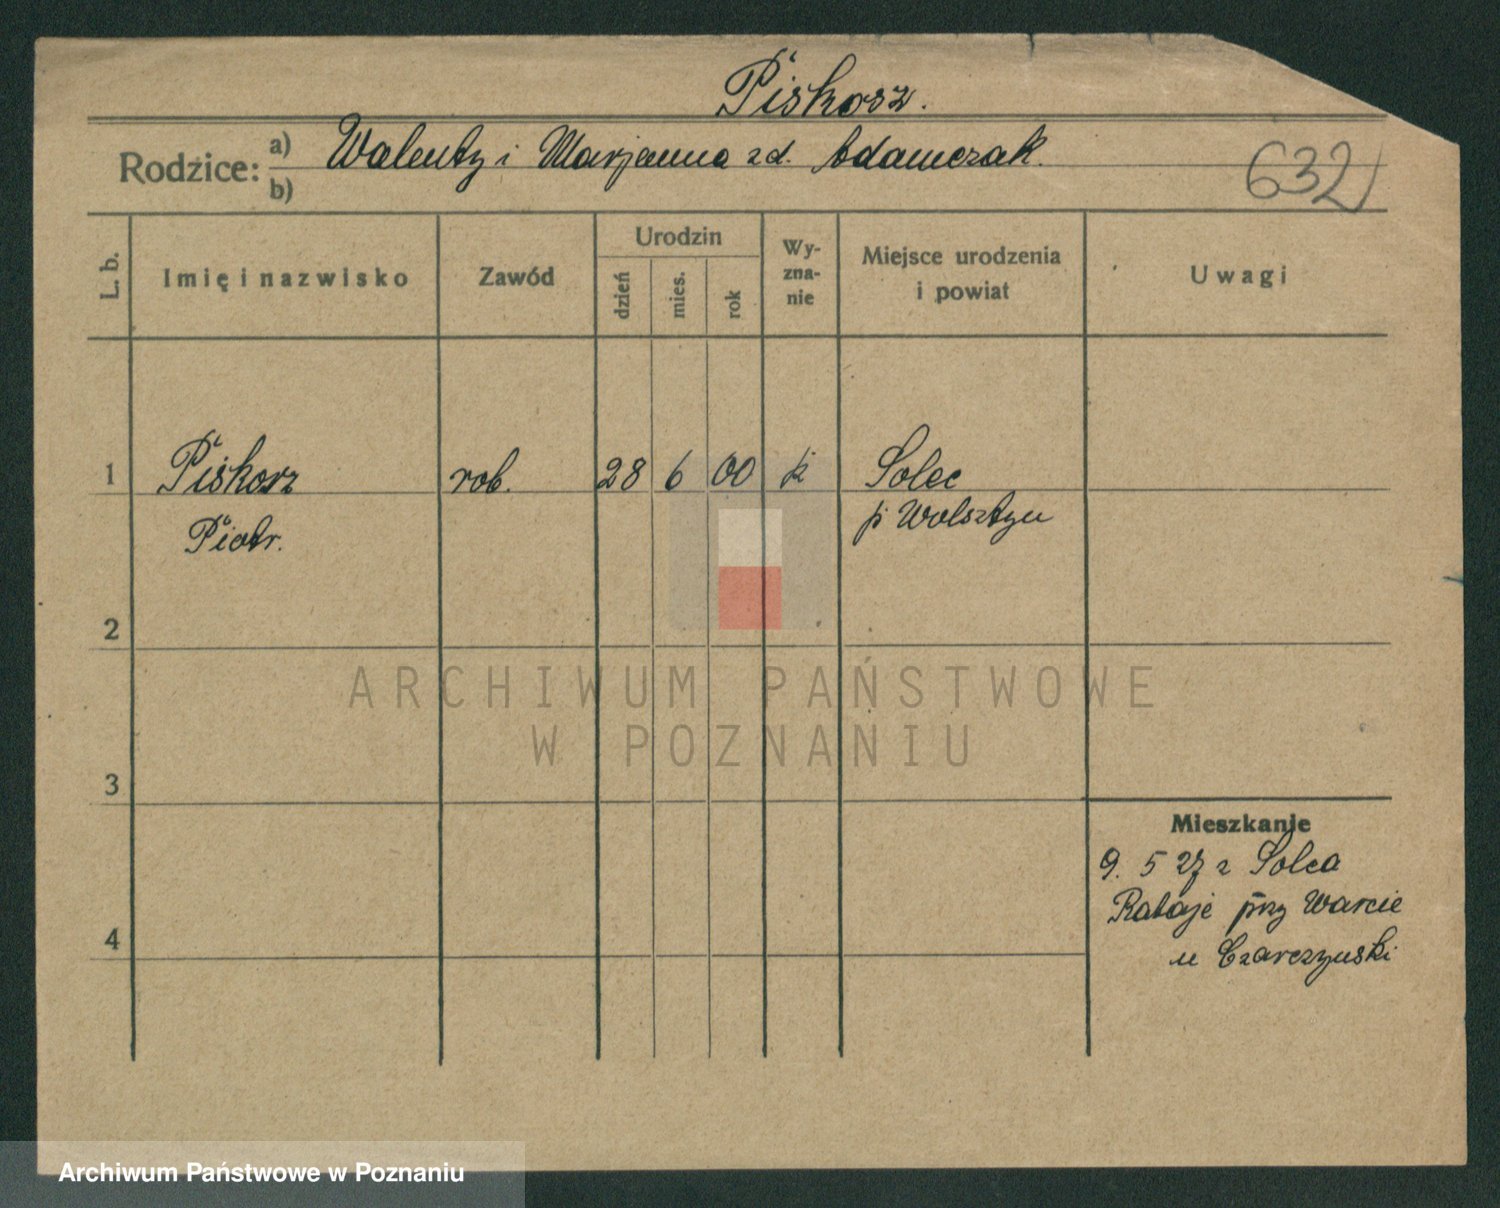 Piskorz.
Rodzice: a) Walenty i Marjanna zd. Adamczak.
b)
632
L. b.
Imię i nazwisko
Zawód
Urodzin
dzień
mies.
rok
Wy-
zna-
nie
Miejsce urodzenia
i powiat
Uwagi
1 Piskorz rob. 28 6 00 k Solec
Piotr. p Wolsztyn
2
ARCHIWUM PAŃSTWOWE
W POZNANIU
3
Mieszkanie
9. 5 27 z Solca
Rataje przy Warcie
4
u Czarczyński
Archiwum Państwowe w Poznaniu